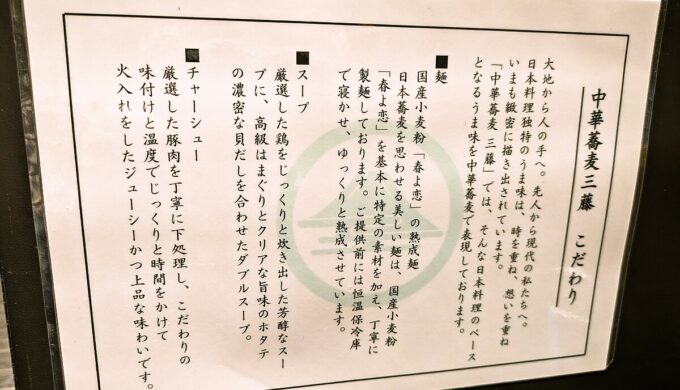 中華蕎麦三藤 こだわり
大地から人の手へ。先人から現代の私たちへ。
日本料理独特のうま味は、時を重ね、想いを重ね
いまも緻密に描き出されています。
「中華蕎麦 三藤」では、そんな日本料理のベース
となるうま味を中華蕎麦で表現しております。
■麺
国産小麦粉「春よ恋」の熟成麺
日本蕎麦を思わせる美しい麺は、国産小麦粉
「春よ恋」を基本に特定の素材を加え、丁寧に
製麺しております。ご提供前には恒温保冷庫
で寝かせ、ゆっくりと熟成させています。
■スープ
厳選した鶏をじっくりと炊き出した芳醇なスー
プに、高級はまぐりとクリアな旨味のホタテ
の濃密な貝だしを合わせたダブルスープ。
■チャーシュー
厳選した豚肉を丁寧に下処理し、こだわりの
味付けと温度でじっくりと時間をかけて
火入れをしたジューシーかつ上品な味わいです。